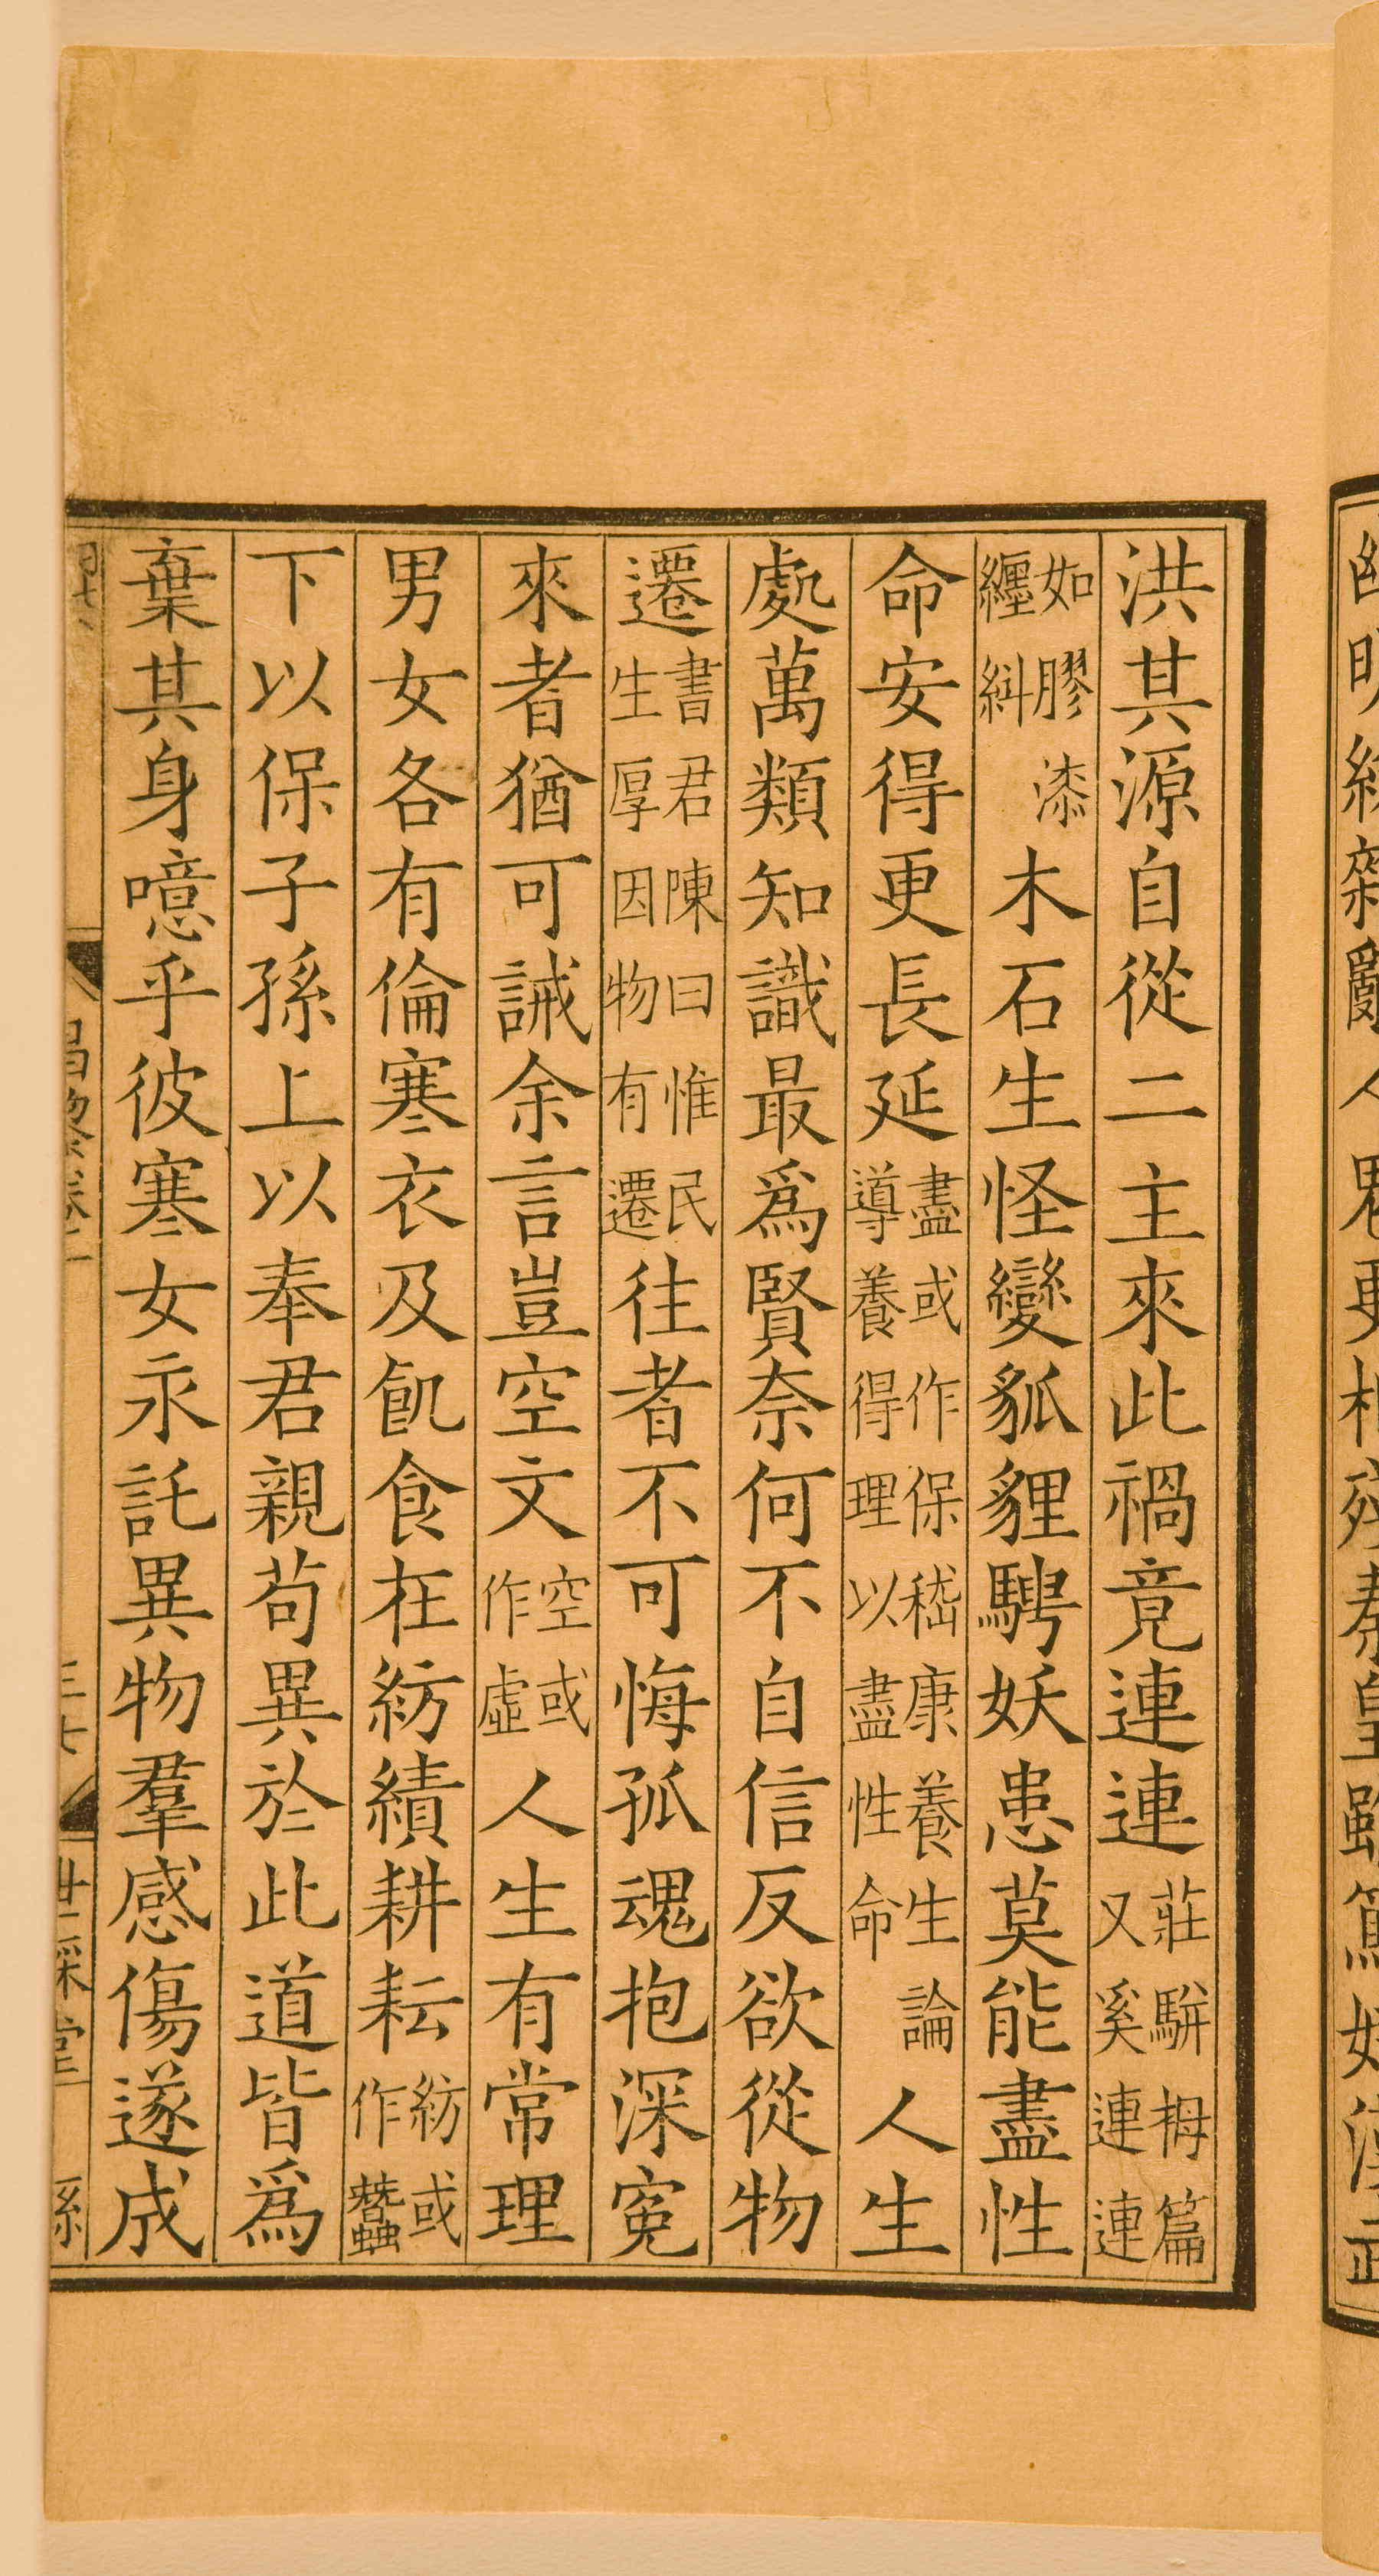 洪其源自從二主來此禍竟連連莊駢拇篇又奚連連
如膠漆纏糾木石生怪變狐貍騁妖患莫能盡性
命安得更長延盡或作保嵇康養生論導養得理以盡性命人生
處萬類知識最爲賢奈何不自信反欲從物
遷書君陳曰惟民生厚因物有遷往者不可悔孤魂抱深冤
來者猶可誡余言豈空文空或作虛人生有常理
男女各有倫寒衣及飢食在紡績耕耘紡或作蠶
下以保子孫上以奉君親苟異於此道皆爲
棄其身噫乎彼寒女永託異物羣感傷遂成